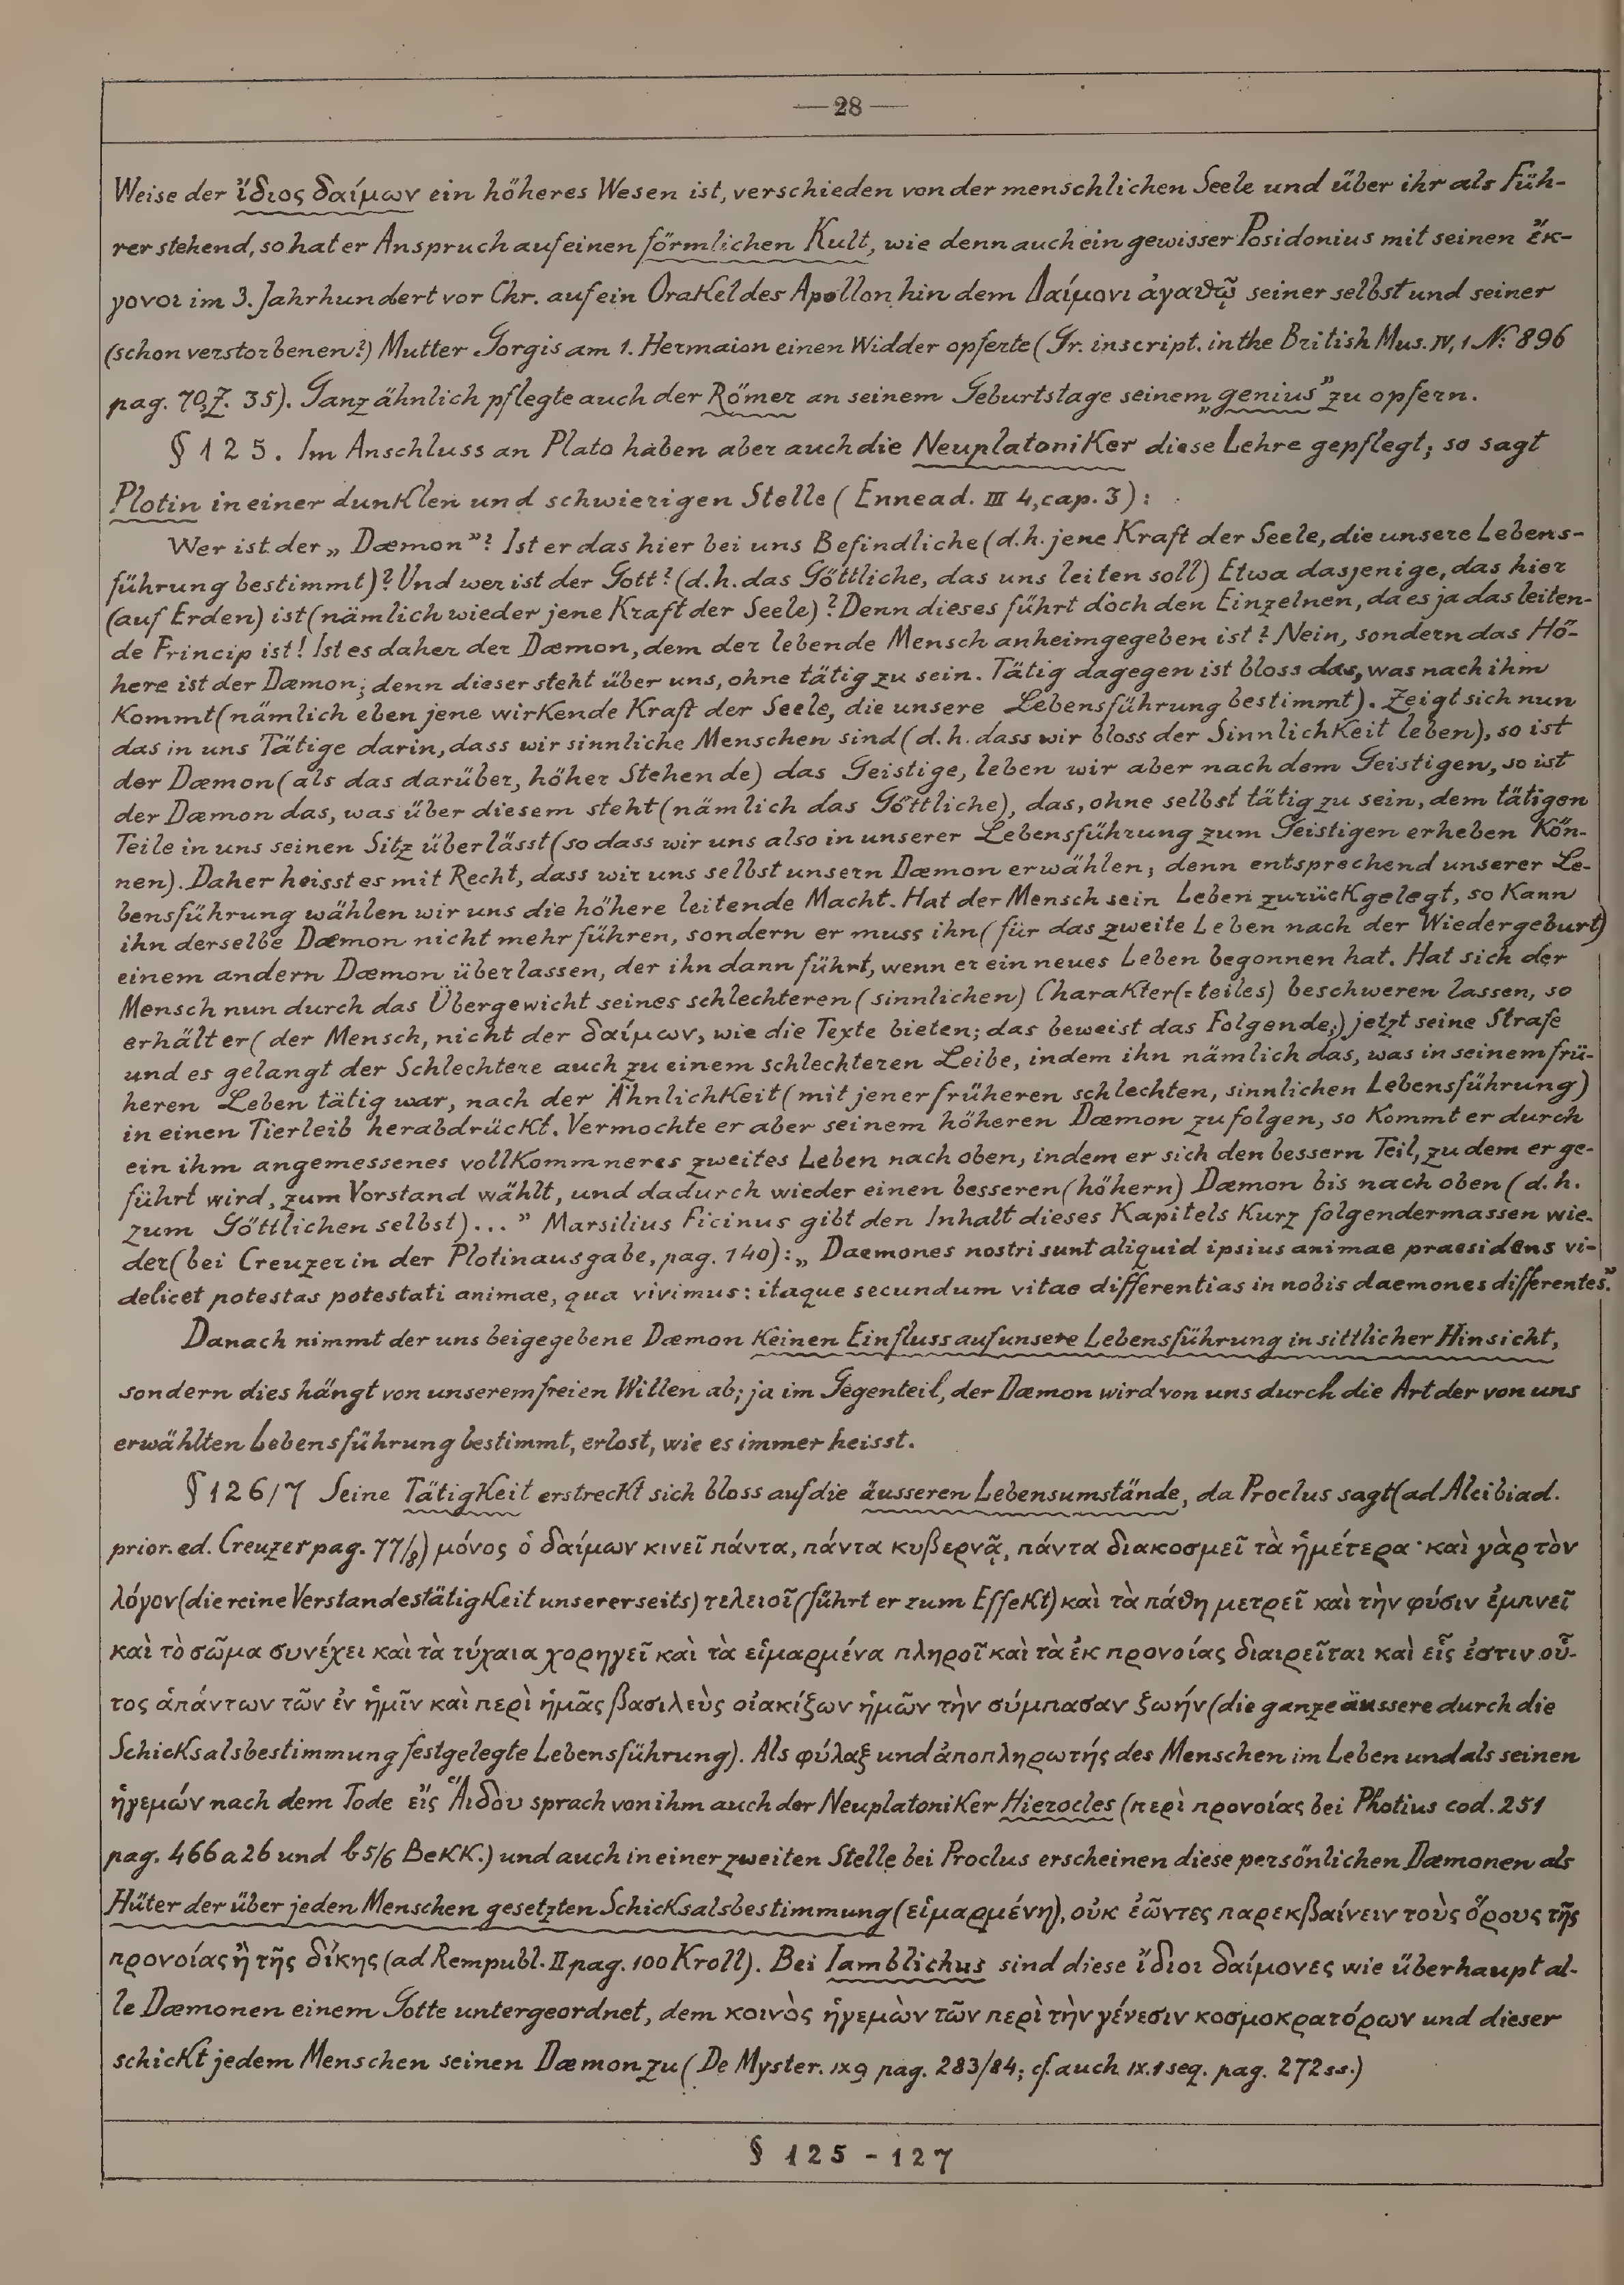 —28—
Weise der ἴδιος δαίμων ein höheres Wesen ist, verschieden von der menschlichen Seele und über ihr als Füh-
rer stehend, so hat er Anspruch auf einen förmlichen Kult, wie denn auch ein gewisser Posidonius mit seinen ἔκ-
γονοι im 3. Jahrhundert vor Chr. auf ein Orakel des Apollon hin dem Δαίμονι ἀγαθῷ seiner selbst und seiner
(schon verstorbenen?) Mutter Gorgis am 1. Hermaion einen Widder opferte (Gr. inscript. in the British Mus. IV, 1 N: 896
pag. 70, Z. 35). Ganz ähnlich pflegte auch der Römer an seinem Geburtstage seinem „genius" zu opfern.
§ 125. Im Anschluss an Plato haben aber auch die Neuplatoniker diese Lehre gepflegt; so sagt
Plotin in einer dunklen und schwierigen Stelle (Ennead. III 4, cap. 3):
Wer ist der „Dæmon"? Ist er das hier bei uns Befindliche (d.h. jene Kraft der Seele, die unsere Lebens-
führung bestimmt)? Und wer ist der Gott? (d.h. das Göttliche, das uns leiten soll) Etwa dasjenige, das hier
(auf Erden) ist (nämlich wieder jene Kraft der Seele)? Denn dieses führt doch den Einzelnen, da es ja das leiten-
de Princip ist! Ist es daher der Dæmon, dem der lebende Mensch anheimgegeben ist? Nein, sondern das Hö-
here ist der Dæmon; denn dieser steht über uns, ohne tätig zu sein. Tätig dagegen ist bloss das, was nach ihm
kommt (nämlich eben jene wirkende Kraft der Seele, die unsere Lebensführung bestimmt). Zeigt sich nun
das in uns Tätige darin, dass wir sinnliche Menschen sind (d.h. dass wir bloss der Sinnlichkeit leben), so ist
der Dæmon (als das darüber, höher Stehende) das Geistige, leben wir aber nach dem Geistigen, so ist
der Dæmon das, was über diesem steht (nämlich das Göttliche), das, ohne selbst tätig zu sein, dem tätigen
Teile in uns seinen Sitz überlässt (so dass wir uns also in unserer Lebensführung zum Geistigen erheben kön-
nen). Daher heisst es mit Recht, dass wir uns selbst unsern Dæmon erwählen; denn entsprechend unserer Le-
bensführung wählen wir uns die höhere leitende Macht. Hat der Mensch sein Leben zurückgelegt, so kann
ihn derselbe Dæmon nicht mehr führen, sondern er muss ihn (für das zweite Leben nach der Wiedergeburt)
einem andern Dæmon überlassen, der ihn dann führt, wenn er ein neues Leben begonnen hat. Hat sich der
Mensch nun durch das Übergewicht seines schlechteren (sinnlichen) Charakter(=teiles) beschweren lassen, so
erhält er (der Mensch, nicht der δαίμων, wie die Texte bieten; das beweist das Folgende;) jetzt seine Strafe
und es gelangt der Schlechtere auch zu einem schlechteren Leibe, indem ihn nämlich das, was in seinem frü-
heren Leben tätig war, nach der Ähnlichkeit (mit jener früheren schlechten, sinnlichen Lebensführung)
in einen Tierleib herabdrückt. Vermochte er aber seinem höheren Dæmon zu folgen, so kommt er durch
ein ihm angemessenes vollkommneres zweites Leben nach oben, indem er sich den bessern Teil, zu dem er ge-
führt wird, zum Vorstand wählt, und dadurch wieder einen besseren (höhern) Dæmon bis nach oben (d.h.
zum Göttlichen selbst)..." Marsilius Ficinus gibt den Inhalt dieses Kapitels kurz folgendermassen wie-
der (bei Creuzer in der Plotinausgabe, pag. 140): „Daemones nostri sunt aliquid ipsius animae praesidens vi-
delicet potestas potestati animae, qua vivimus: itaque secundum vitae differentias in nobis daemones differentes."
Danach nimmt der uns beigegebene Dæmon keinen Einfluss auf unsere Lebensführung in sittlicher Hinsicht,
sondern dies hängt von unserem freien Willen ab; ja im Gegenteil, der Dæmon wird von uns durch die Art der von uns
erwählten Lebensführung bestimmt, erlost, wie es immer heisst.
§ 126/7 Seine Tätigkeit erstreckt sich bloss auf die äusseren Lebensumstände, da Proclus sagt (ad Alcibiad.
prior. ed. Creuzer pag. 77/8) μόνος ὁ δαίμων κινεῖ πάντα, πάντα κυβερνᾷ, πάντα διακοσμεῖ τὰ ἡμέτερα· καὶ γὰρ τὸν
λόγον (die reine Verstandestätigkeit unsererseits) τελειοῖ (führt er zum Effekt) καὶ τὰ πάθη μετρεῖ καὶ τὴν φύσιν ἐμπνεῖ
καὶ τὸ σῶμα συνέχει καὶ τὰ τύχαια χορηγεῖ καὶ τὰ εἱμαρμένα πληροῖ καὶ τὰ ἐκ προνοίας διαιρεῖται καὶ εἷς ἐστιν οὗ-
τος ἁπάντων τῶν ἐν ἡμῖν καὶ περὶ ἡμᾶς βασιλεὺς οἰακίζων ἡμῶν τὴν σύμπασαν ζωήν (die ganze äussere durch die
Schicksalsbestimmung festgelegte Lebensführung). Als φύλαξ und ἀποπληρωτής des Menschen im Leben und als seinen
ἡγεμών nach dem Tode εἴς Ἅιδου sprach von ihm auch der Neuplatoniker Hierocles (περὶ προνοίας bei Photius cod. 251
pag. 466 a 26 und b 5/6 Bekk.) und auch in einer zweiten Stelle bei Proclus erscheinen diese persönlichen Dæmonen als
Hüter der über jeden Menschen gesetzten Schicksalsbestimmung (εἱμαρμένη), οὐκ ἐῶντες παρεκβαίνειν τοὺς ὅρους τῆς
προνοίας ἢ τῆς δίκης (ad Rempubl. II pag. 100 Kroll). Bei Iamblichus sind diese ἴδιοι δαίμονες wie überhaupt al-
le Dæmonen einem Gotte untergeordnet, dem κοινὸς ἡγεμὼν τῶν περὶ τὴν γένεσιν κοσμοκρατόρων und dieser
schickt jedem Menschen seinen Dæmon zu (De Myster. IX 9 pag. 283/84; cf. auch IX. 1 seq. pag. 272 ss.)
§ 125 - 127